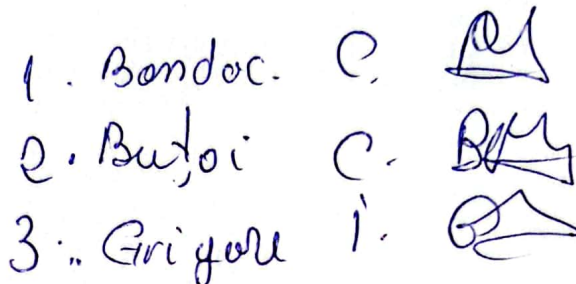 1. Bondoc. C.
2. Buțoi C.
3.. Grigore I.